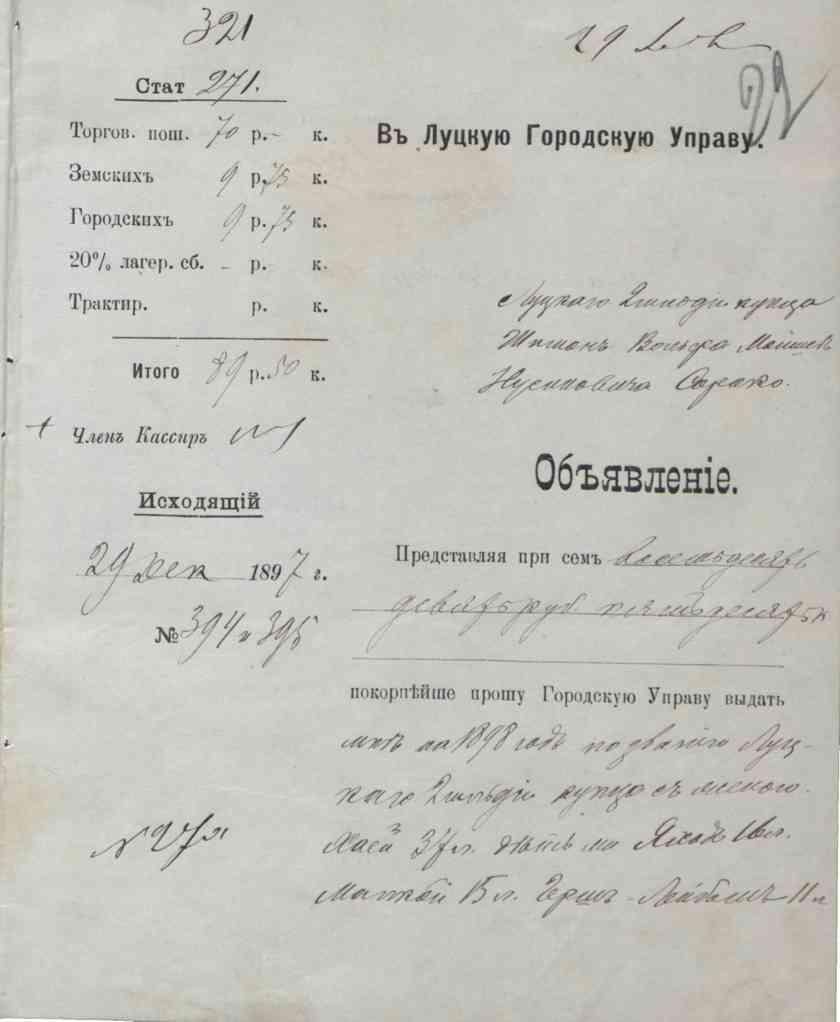 321
29
22
Стат 271.
Торгов. пош. 70 р. - к.
Земскихъ 9 р. 75 к.
Городскихъ 9 р. 75 к.
20% лагер. сб. - р. к.
Трактир. р. к.
Итого 89 р. 50 к.
+ Членъ Кассиръ
Исходящій
29 Дек 1897 г.
№ 394 и 395
№ 271
Въ Луцкую Городскую Управу.
Луцкаго 2 гильдіи купца
Шимонъ Вольфа
Нусиновича
Объявленіе.
Представляя при семъ восемьдесятъ
девять руб пятьдесятъ к
покорнѣйше прошу Городскую Управу выдать
мнѣ на 1898 годъ по званію Луц-
каго 2 гильдіи купца съ женою
Хаей 37 л. дѣтьми 16 л.
15 л. Герш-Лейбомъ 11 л